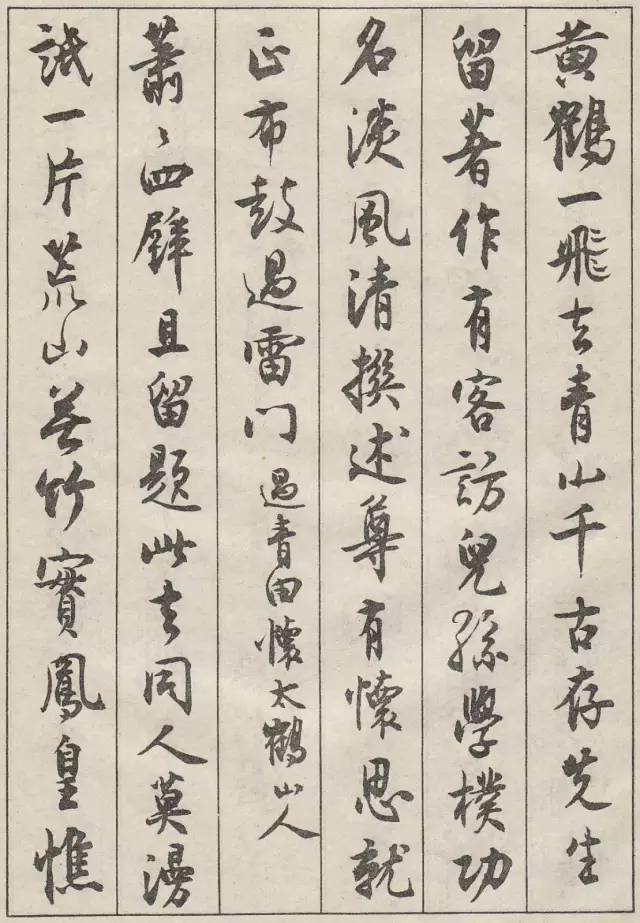 黄鶴一飛去青山千古存先生
留著作有客訪兒孫學樸功
名淡風清撰述尊有懷思就
正布鼓過雷门過青田懷太鶴山人
蕭〻四壁且留題此去同人莫漫
詆一片荒山無竹實鳳皇憔